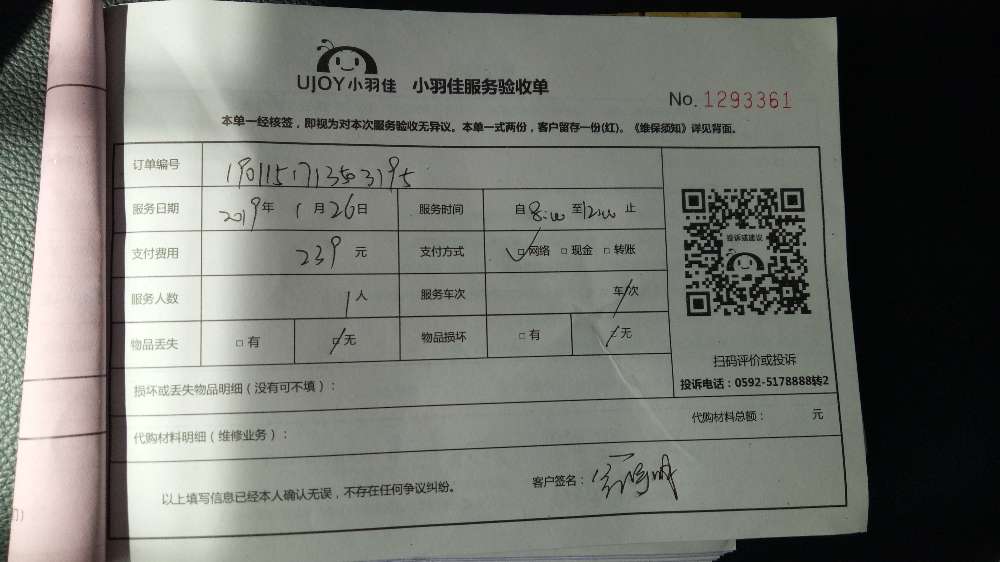 UJOY小羽佳 小羽佳服务验收单
No. 1293361
本单一经核签，即视为对本次服务验收无异议。本单一式两份，客户留存一份(红)。《维保须知》详见背面。
订单编号 190115171353195
服务日期 2019年 1月26日 服务时间 自8:00至12:00止
支付费用 239 元 支付方式 □网络 □现金 □转账
服务人数 1人 服务车次 车/次
物品丢失 □有 □无 物品损坏 □有 □无
投诉或建议
扫码评价或投诉
投诉电话：0592-5178888转2
损坏或丢失物品明细（没有可不填）：
代购材料明细（维修业务）： 代购材料总额： 元
以上填写信息已经本人确认无误，不存在任何争议纠纷。 客户签名：